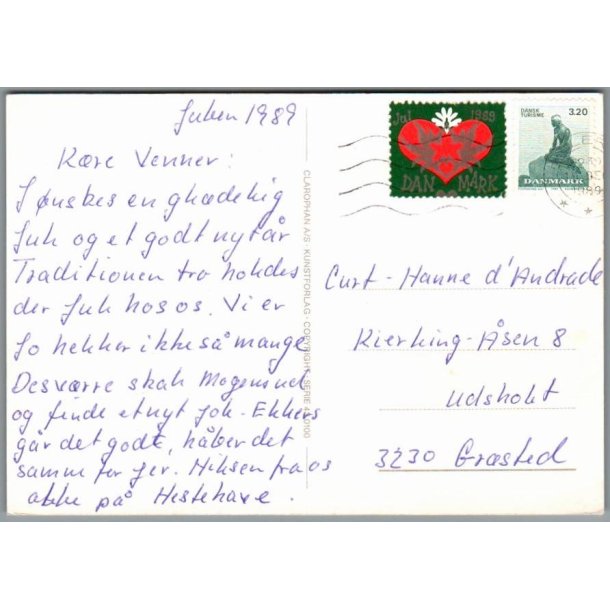 Julen 1989
Kære Venner:
I ønskes en glædelig
Jul og et godt nytår
Traditionen tro holdes
der Jul hos os. Vi er
jo heller ikke så mange
Desværre skal Mogens ud
og finde et nyt job. Ellers
går det godt, håber det
samme for jer. Hilsen fra os
alle på Hestehave.
CLAROPHAN A/S · KUNSTFORLAG · COPYRIGHT · SERIE
Jul 1989
DANMARK
DANSK
TURISME
3.20
DANMARK
Curt - Hanne d'Andrade
Kierling-Åsen 8
Udsholt
3230 Græsted